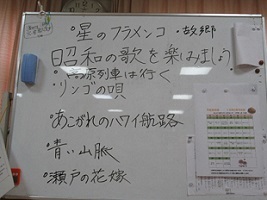 °星のフラメンコ ・故郷
昭和の歌を楽しみましょう
°高原列車は行く
・リンゴの唄
°あこがれのハワイ航路
°青い山脈
°瀬戸の花嫁